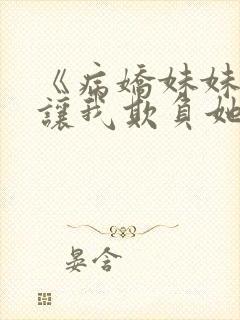 《病嬌妹妹
讓我欺負她
晏含